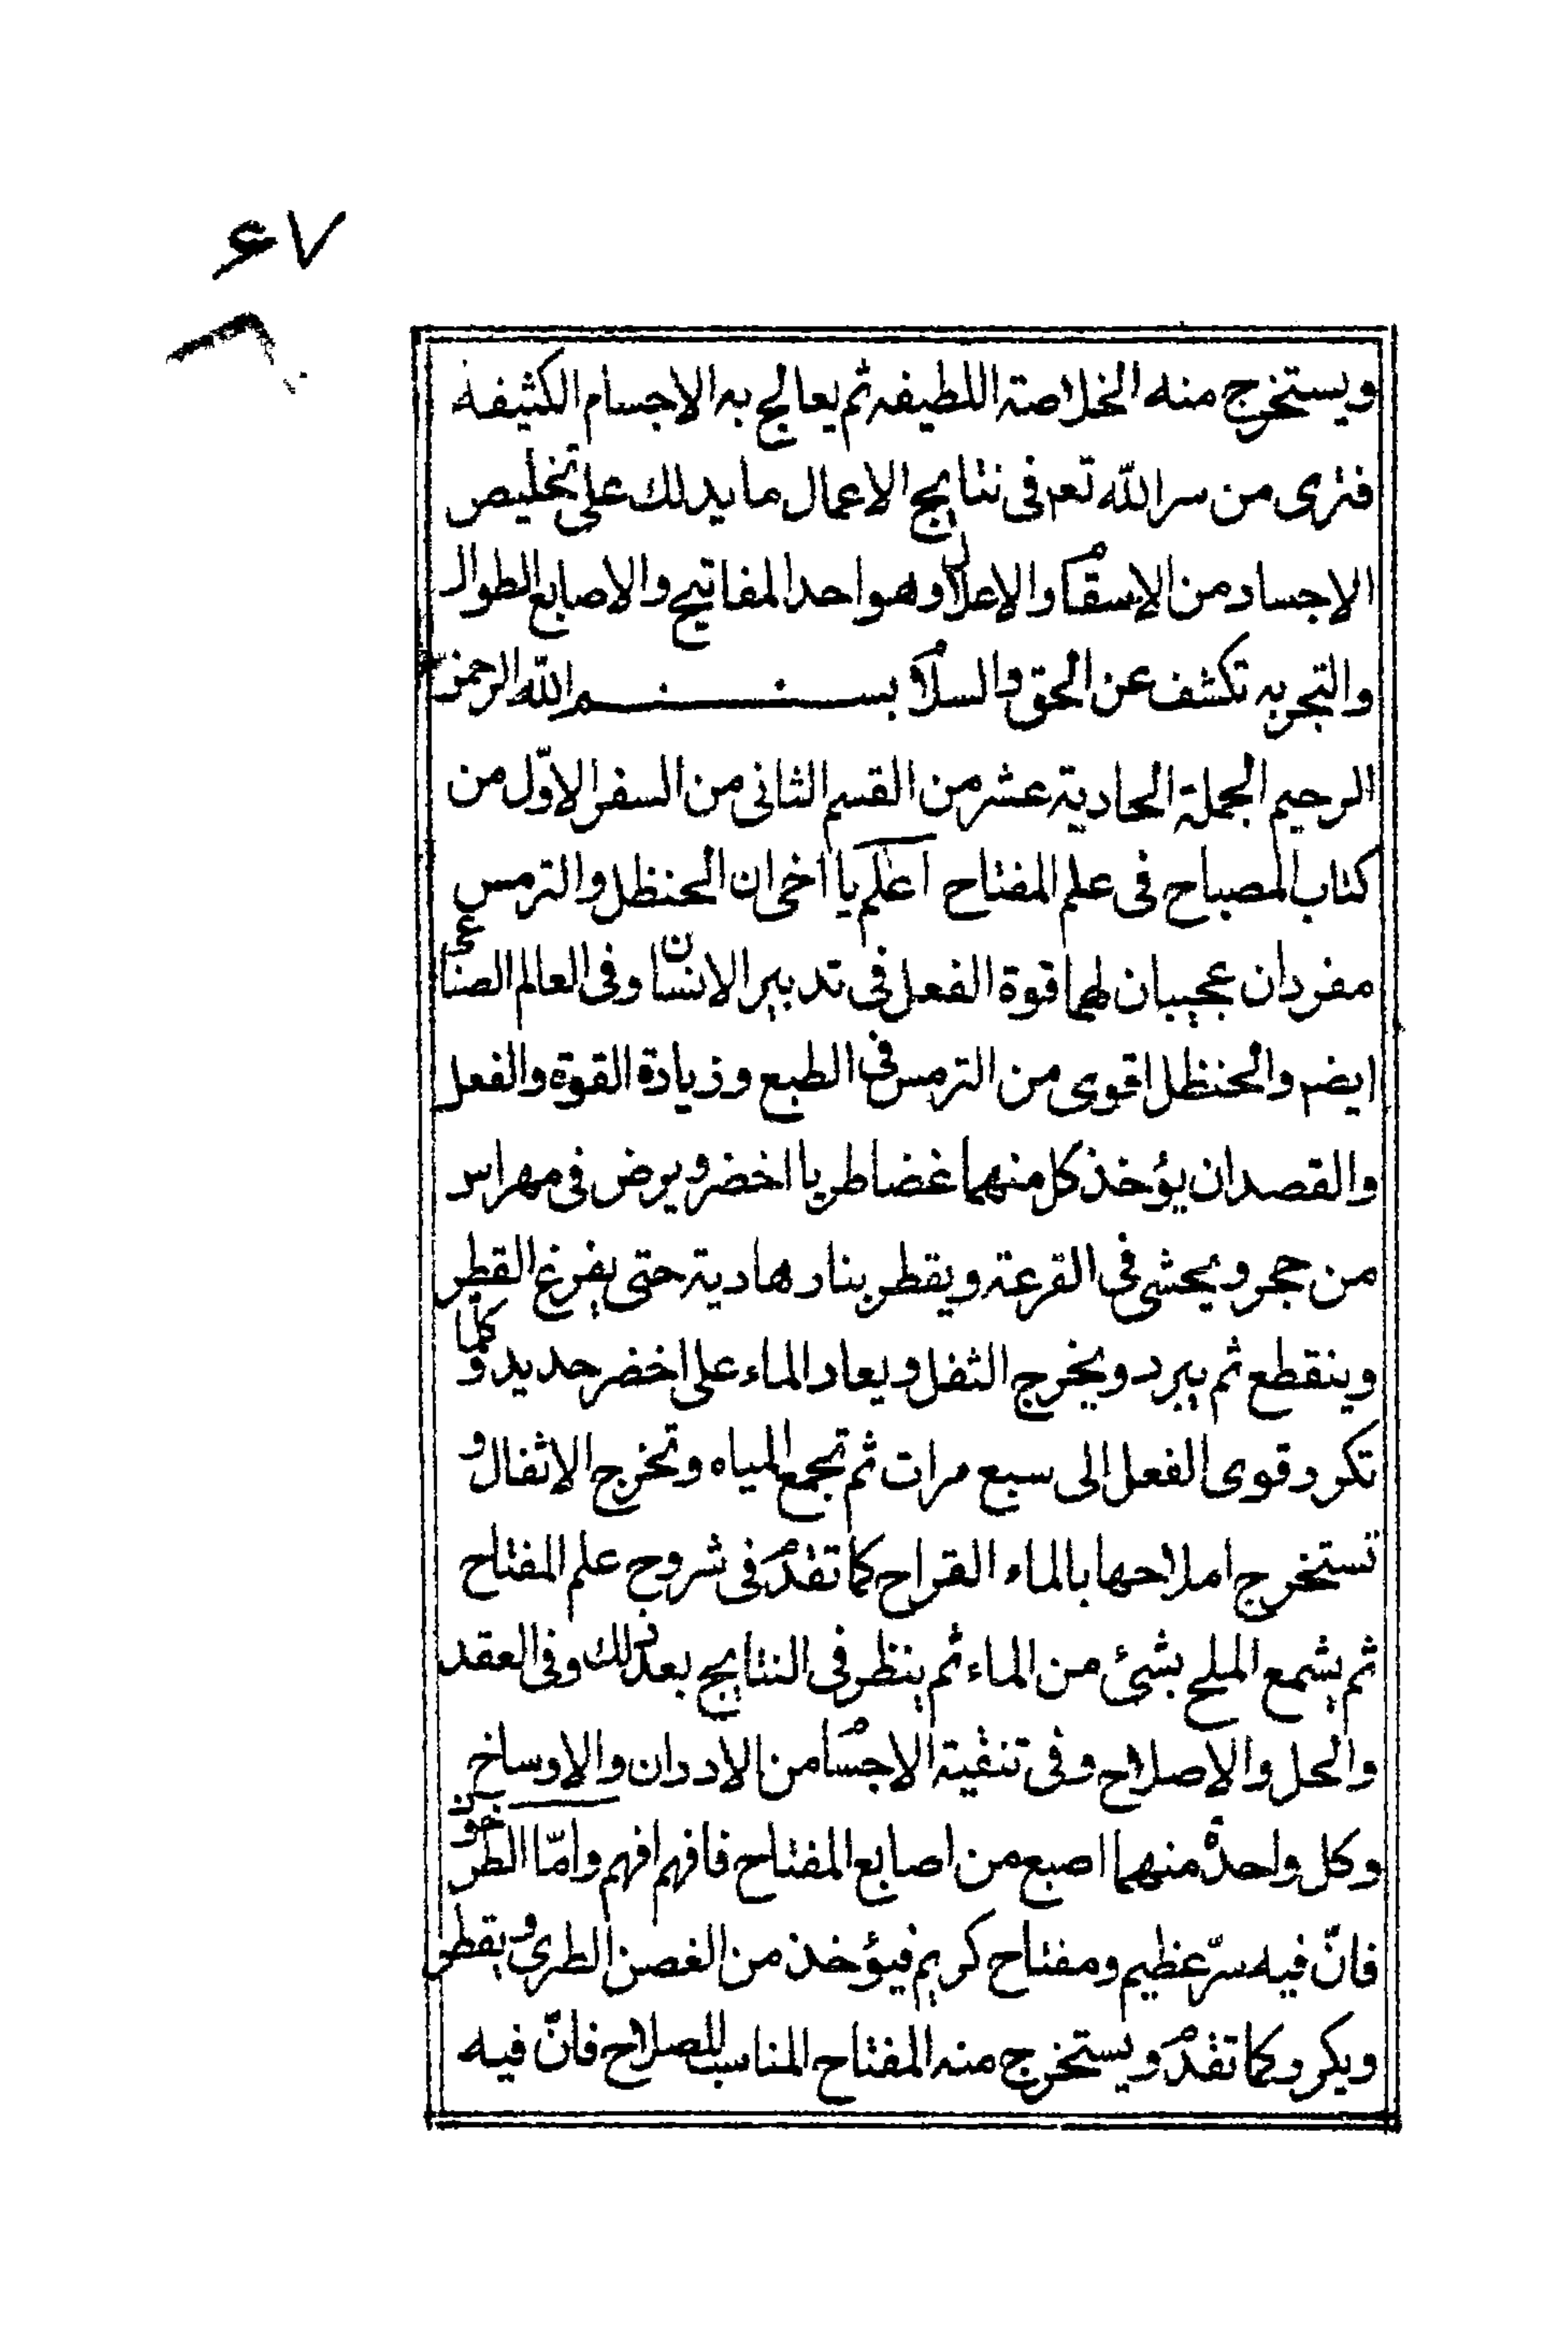 ۶۷
ويستخرج منه الخلاصة اللطيفه ثم يعالج به الاجسام الكثيفة
فترى من سر الله تعم فى نتايج الاعمال ما يدلك على تخليص
الاجساد من الاسقام والاعلال وهو احد المفاتيح والاصابع الطوال
والتجربه تكشف عن الحق والسلام بسم الله الرحمن
الرحيم الجملة الحادية عشر من القسم الثانى من السفر الاوّل من
كتاب المصباح فى علم المفتاح اعلم يا اخى ان الحنظل والترمس
مفردان عجيبان لهما قوة الفعل فى تدبير الانسان وفى العالم الصناعى
ايضم والحنظل اقوى من الترمس فى الطبع وزيادة القوة والفعل
والقصد ان يؤخذ كل منهما غضا طريا اخضر ويرض فى مهراس
من حجر ويحشى فى القرعة ويقطر بنار هادية حتى يفرغ القطر
وينقطع ثم يبرد ويخرج الثفل ويعاد الماء على اخضر جديد وكلما
تكرر قوى الفعل الى سبع مرات ثم تجمع المياه وتخرج الاثفال و
تستخرج املاحها بالماء القراح كما تقدم فى شروح علم المفتاح
ثم يشمع الملح بشئ من الماء ثم ينظر فى النتايج بعد ذلك وفى العقد
والحل والاصلاح وفى تنقية الاجسام من الادران والاوساخ
وكل واحدة منهما اصبع من اصابع المفتاح فافهم افهم وامّا الطرخون
فانّ فيه سرّ عظيم ومفتاح كريم فيؤخذ من الغصن الطرى ويقطر
ويكرر كما تقدم ويستخرج منه المفتاح المناسب للصلاح فانّ فيه